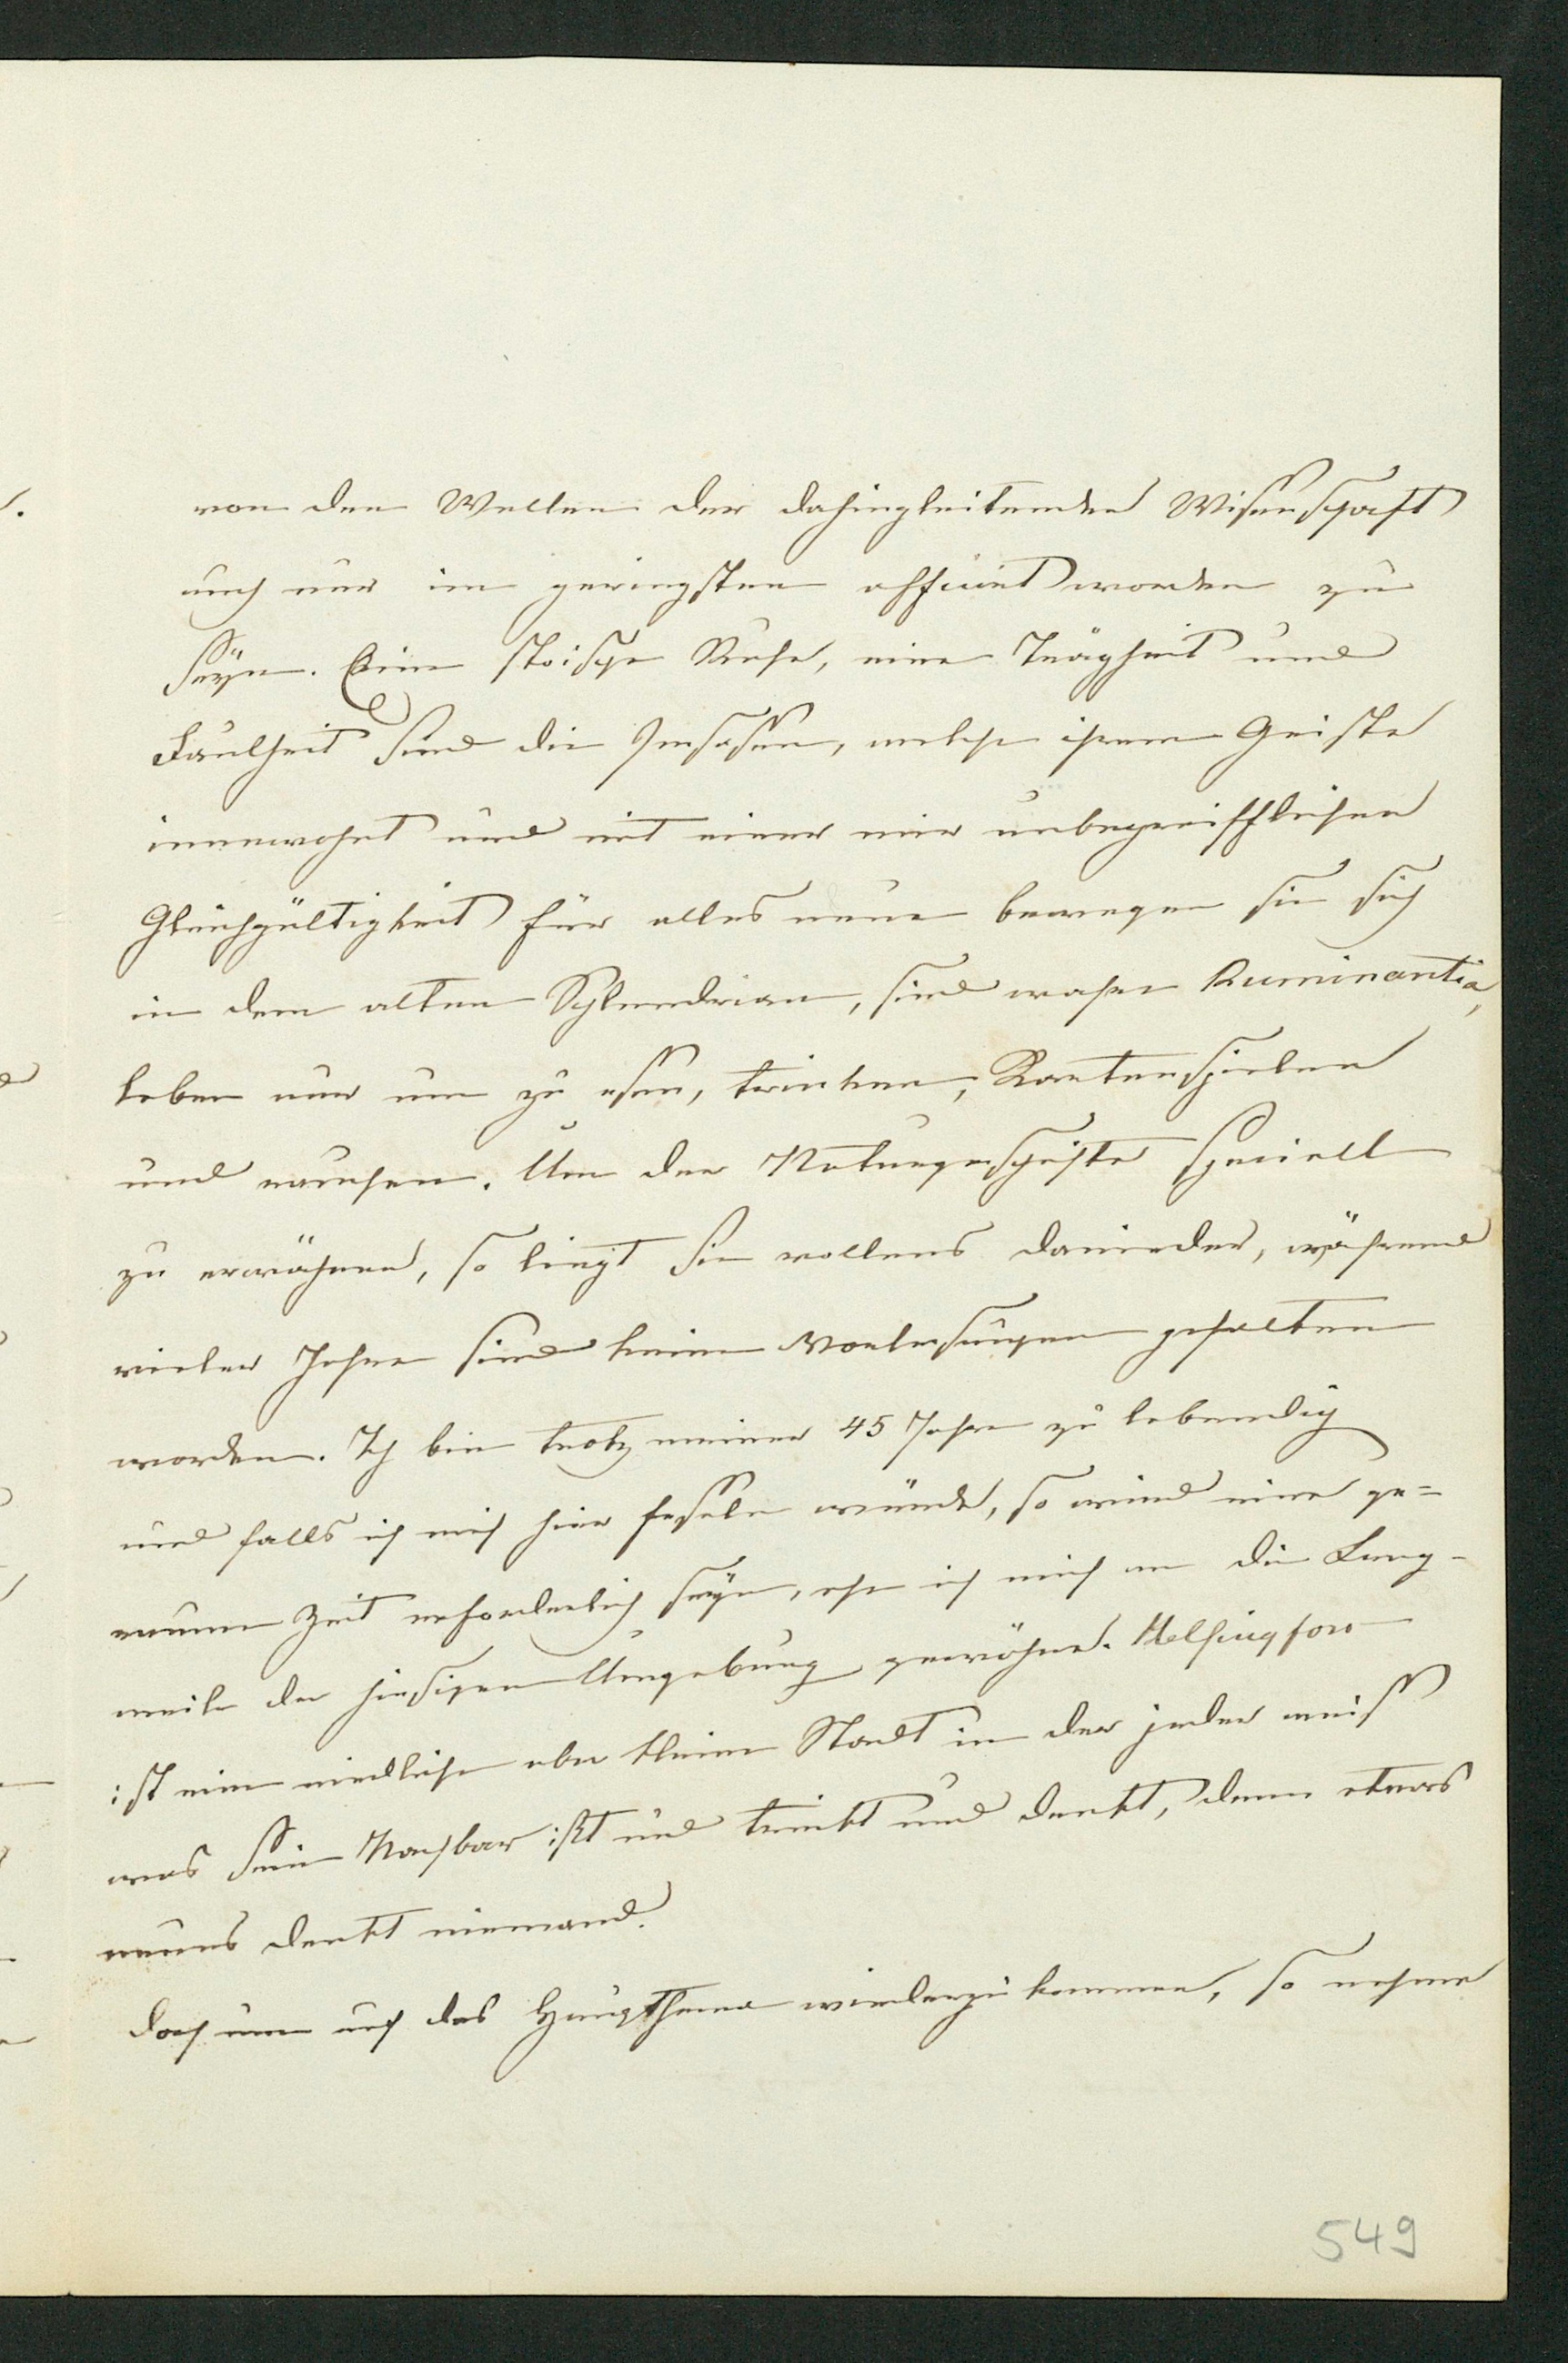 von den Wellen der dahingleitenden Wissenschaft
auch nur im geringsten afficiert worden zu
seyn. Eine stoische Ruhe, eine Trägheit und
Faulheit sind die Insassen, welche ihrem Geiste
innewohnt und mit einer mir unbegreifflichen
Gleichgültigkeit für alles neue bewegen sie sich
in dem alten Schlendrian, sind wahre Ruminantia,
leben nur um zu essen, trinken, Kartenspielen
und rauchen. Um der Naturgeschichte speciell
zu erwähnen, so liegt sie vollens danieder, während
vieler Jahre sind keine Vorlesungen gehalten
worden. Ich bin trotz meiner 45 Jahre zu lebendig
und falls ich mich hier fesseln würde, so wird eine ge=
raume Zeit erforderlich seyn, ehe ich mich an die Lang-
weile der hiesigen Umgebung gewöhne. Helsingfors
ist eine niedliche aber kleine Stadt in der jeder weiss
was sein Nachbar isst und trinkt und denkt, denn etwas
neues denkt niemand.
Doch um auf das Hauptthema wiederzukommen, so nehme
549